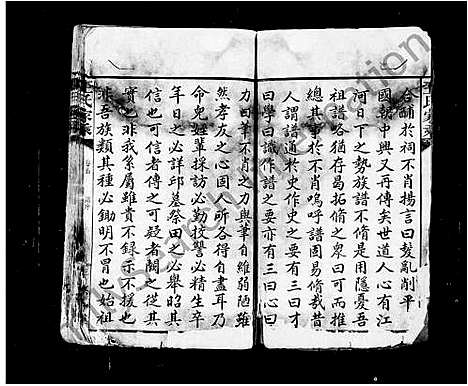 合酺於祠不肖揚言曰髮亂削平
國朝中興又再傳矣世道人心有江
河日下之勢族譜不脩是用隱憂吾
祖譜略猶存曷拓脩之衆曰可而推
總其事於不肖嗚呼譜固易脩哉昔
人謂譜通於史作史之要有三曰才
曰學曰識作譜之要亦有三曰心曰
力曰筆不肖之力與筆自維弱陋雖
然孝友之心固人所各得自盡耳乃
命兒姪輩採訪必勤挍讐必精生卒
年日之必詳邱墓祭田之必舉昭其
信也可信者傳之可疑者闕之從其
實也非我系屬雖貴不録示不援也
非吾族類其種必鋤明不冒也始祖
氏家乘